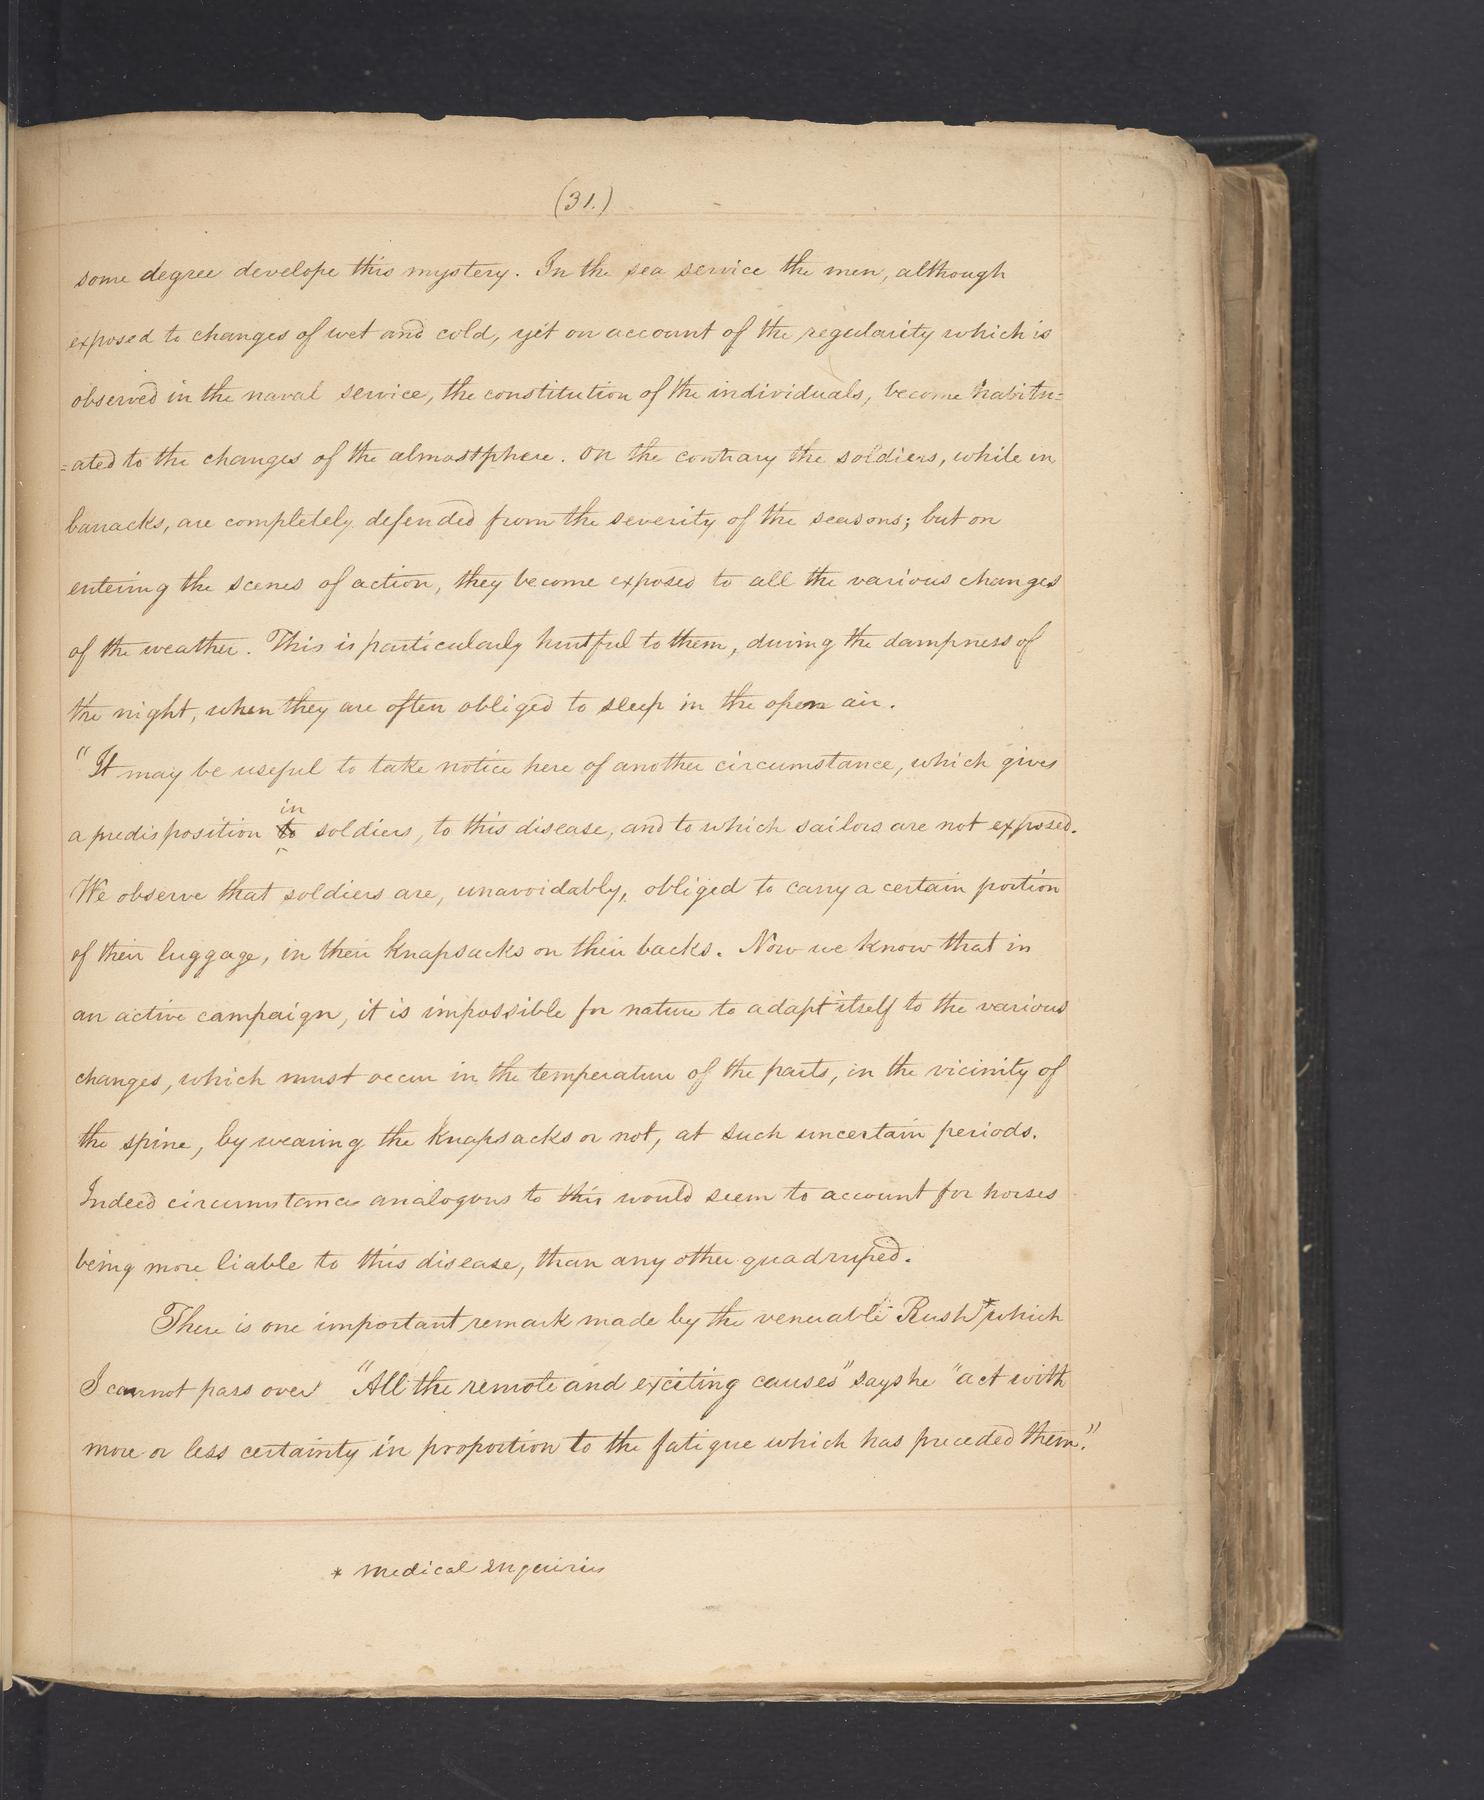 (31.)
some degree develope this mystery. In the sea service the men, although
exposed to changes of wet and cold, yet on account of the regularity which is
observed in the naval service, the constitution of the individuals, become habitu=
=ated to the changes of the almostphere. On the contrary the soldiers, while in
barracks, are completely defended from the severity of the seasons; but on
entering the scenes of action, they become exposed to all the various changes
of the weather. This is particularly hurtful to them, during the dampness of
the night, when they are often obliged to sleep in the open air.
"It may be useful to take notice here of another circumstance, which gives
in
a predisposition to soldiers, to this disease, and to which sailors are not exposed.
We observe that soldiers are, unavoidably, obliged to carry a certain portion
of their luggage, in their knapsacks on their backs. Now we know that in
an active campaign, it is impossible for nature to adapt itself to the various
changes, which must occur in the temperature of the parts, in the vicinity of
the spine, by wearing the knapsacks or not, at such uncertain periods.
Indeed circumstances analogous to this would seem to account for horses
being more liable to this disease, than any other quadruped.
There is one important remark made by the venerable Rush* which
I cannot pass over "All the remote and exciting causes" says he "act with
more or less certainty in proportion to the fatigue which has preceded them."
* Medical Enquiries